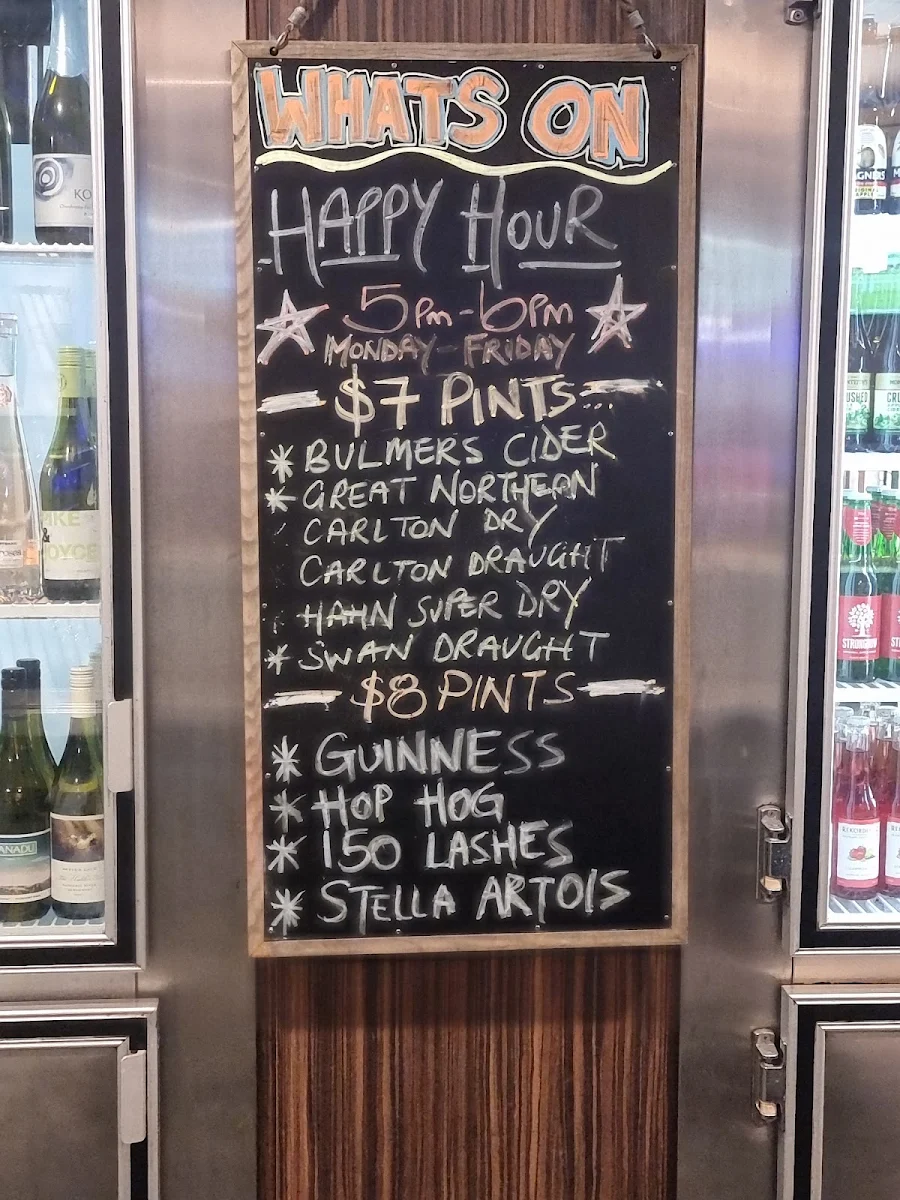 WHATS ON
HAPPY HOUR
5pm - 6pm
MONDAY - FRIDAY
$7 PINTS...
* BULMERS CIDER
* GREAT NORTHERN
CARLTON DRY
CARLTON DRAUGHT
HAHN SUPER DRY
* SWAN DRAUGHT
$8 PINTS
* GUINNESS
* HOP HOG
* 150 LASHES
* STELLA ARTOIS